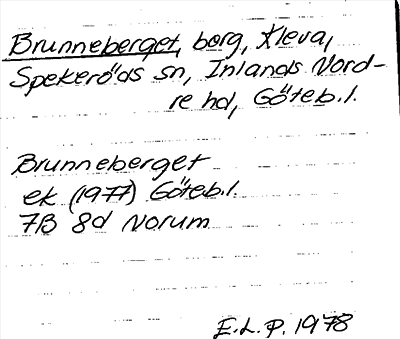 Brunneberget, borg, Kleva,
Spekeröds sn, Inlands Nord-
re hd, Göteb.l.
Brunneberget
ek (1977) Göteb.l.
7B 8d Norum
E.L.P. 1978